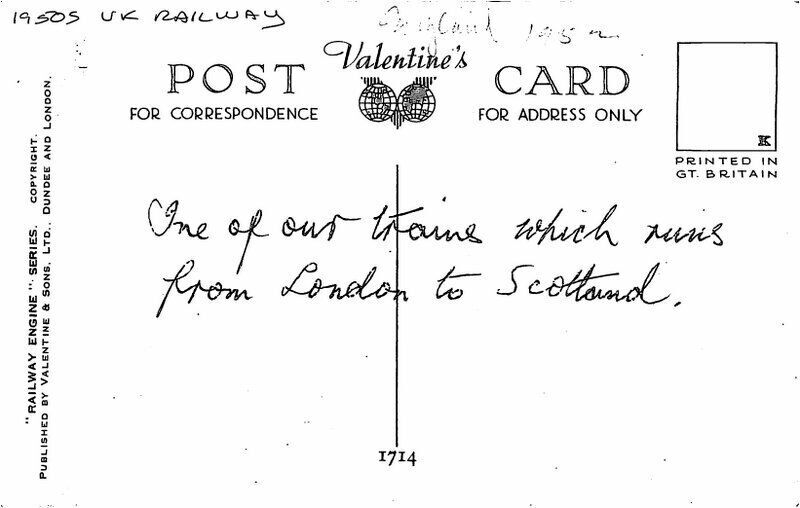 1950S UK RAILWAY
England 1952
Valentine's
POST CARD
FOR CORRESPONDENCE
FOR ADDRESS ONLY
K
PRINTED IN
GT. BRITAIN
"RAILWAY ENGINE". SERIES. COPYRIGHT.
PUBLISHED BY VALENTINE & SONS, LTD., DUNDEE AND LONDON.
One of our trains which runs
from London to Scotland.
1714